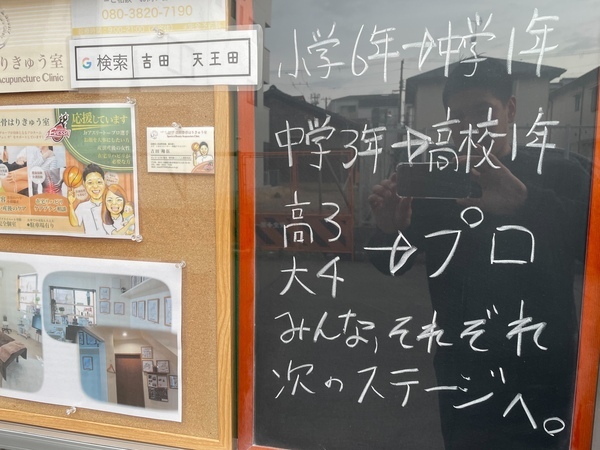 080-3820-7190
りきゅう室
Acupuncture Clinic
G 検索 吉田 天王田
骨はりきゅう室
応援しています
小学6年→中学1年
中学3年→高校1年
高3
大4
→プロ
みんな,それぞれ
次のステージへ。